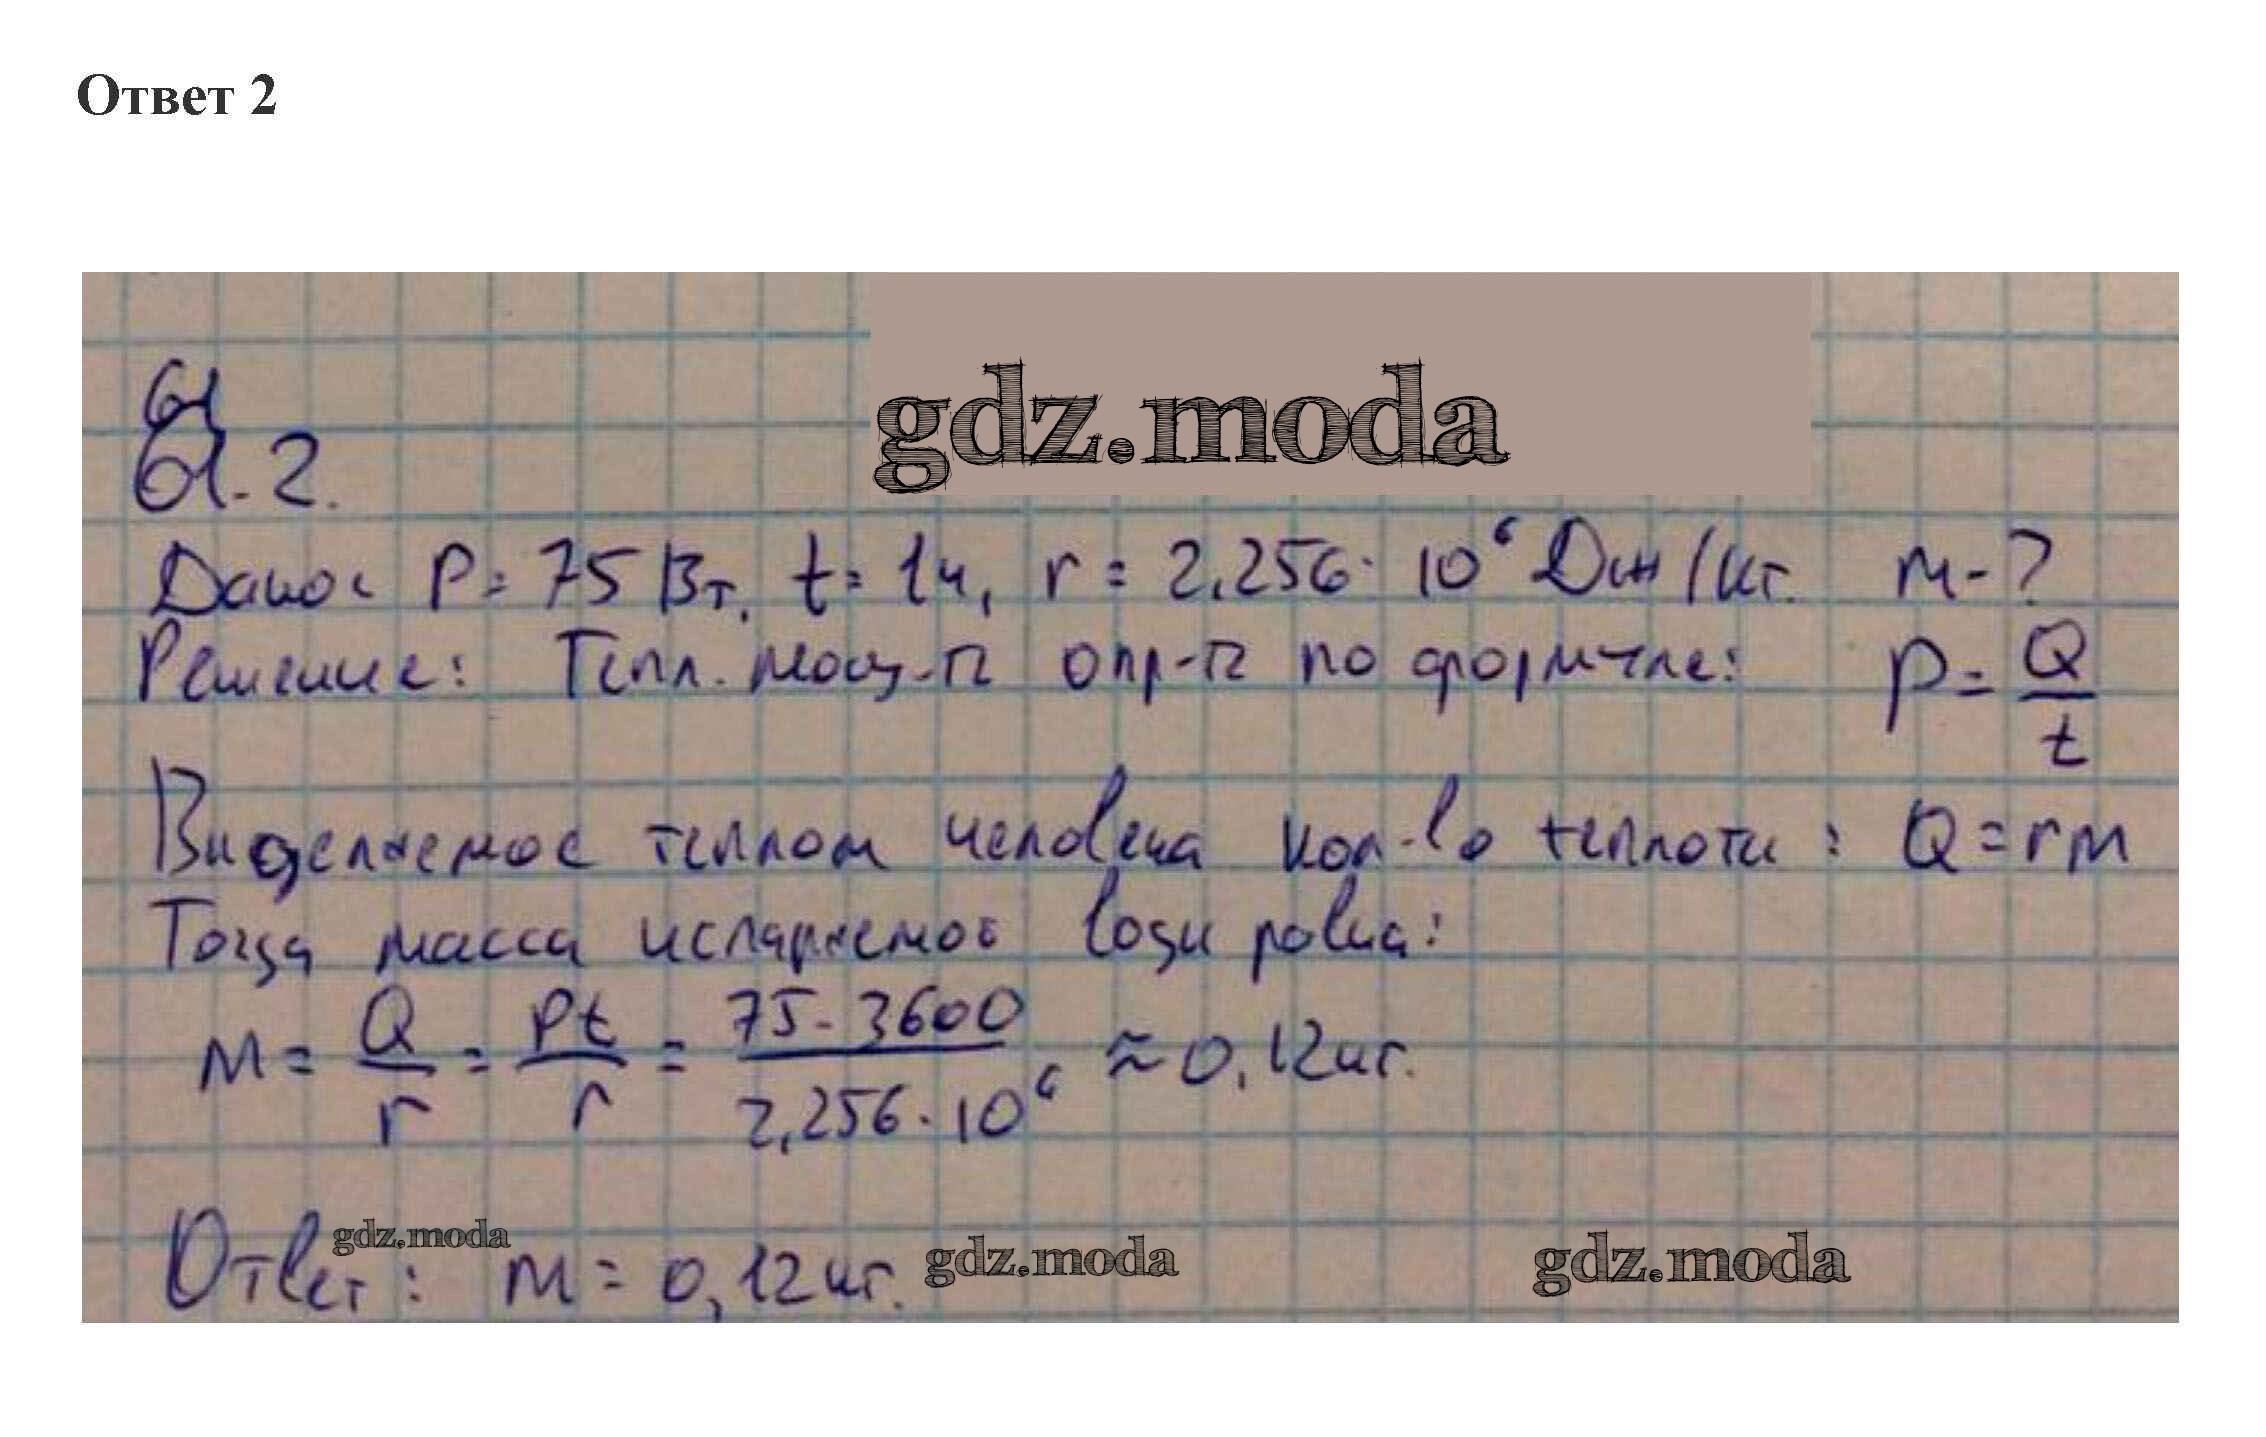 Ответ 2
gdz.moda
61
61.2.
Дано: P = 75 Вт, t = 1 ч, r = 2,256 · 10⁶ Дж/кг. m - ?
Решение: Тепл. мощ-ть опр-ть по формуле: P = Q/t
Виделяемое теплом человека кол-во теплоти: Q = rm
Тогда масса испаряемое води ровна:
m = Q/r = Pt/r = 75 · 3600 / 2,256 · 10⁶ ≈ 0,12 кг.
Ответ: m = 0,12 кг.
gdz.moda gdz.moda gdz.moda